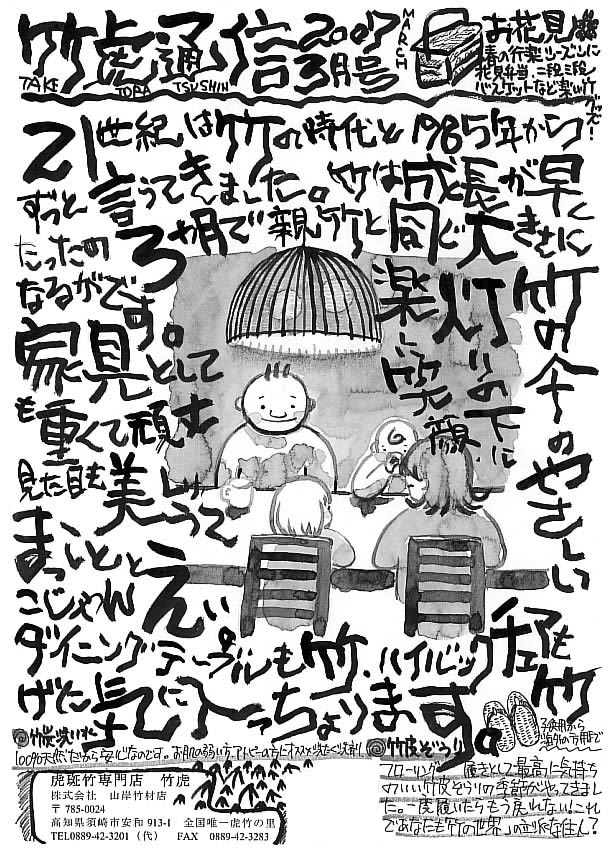 竹虎通信 2007 3月号
TAKE TORA TSUSHIN
MARCH
お花見
春の行楽シーズンに
花見弁当、二段三段
バスケットなど楽しい竹グッズ!
21世紀は竹の時代と1985年から
ずっと言うてきました。竹は成長が早く
たったの3ヶ月で親竹と同じ大きさに
なるがです。
竹の傘のやさしい
灯りの下に
楽しい笑顔、
家具として
も重くて頑丈
見た目も美しゅうて
まっこと
こじゃんと えい。
ダイニングテーブルも竹、ハイバックチェアも竹
げに気に入っちょります。
竹炭洗い水
100%天然だから安心なのです。お肌の弱い方、アトピーの方にオススメ洗たく洗剤!
竹皮ぞうり
子供用から
フローリング 履きとして最高に気持ち
のいい竹皮ぞうりの季節がやってきまし
た。一度履いたらもう戻れない!これ
であなたも「竹の世界」の立派な住人?
虎斑竹専門店 竹虎
株式会社 山岸竹材店
〒785-0024
高知県須崎市安和 913-1 全国唯一虎竹の里
TEL0889-42-3201(代) FAX 0889-42-3283